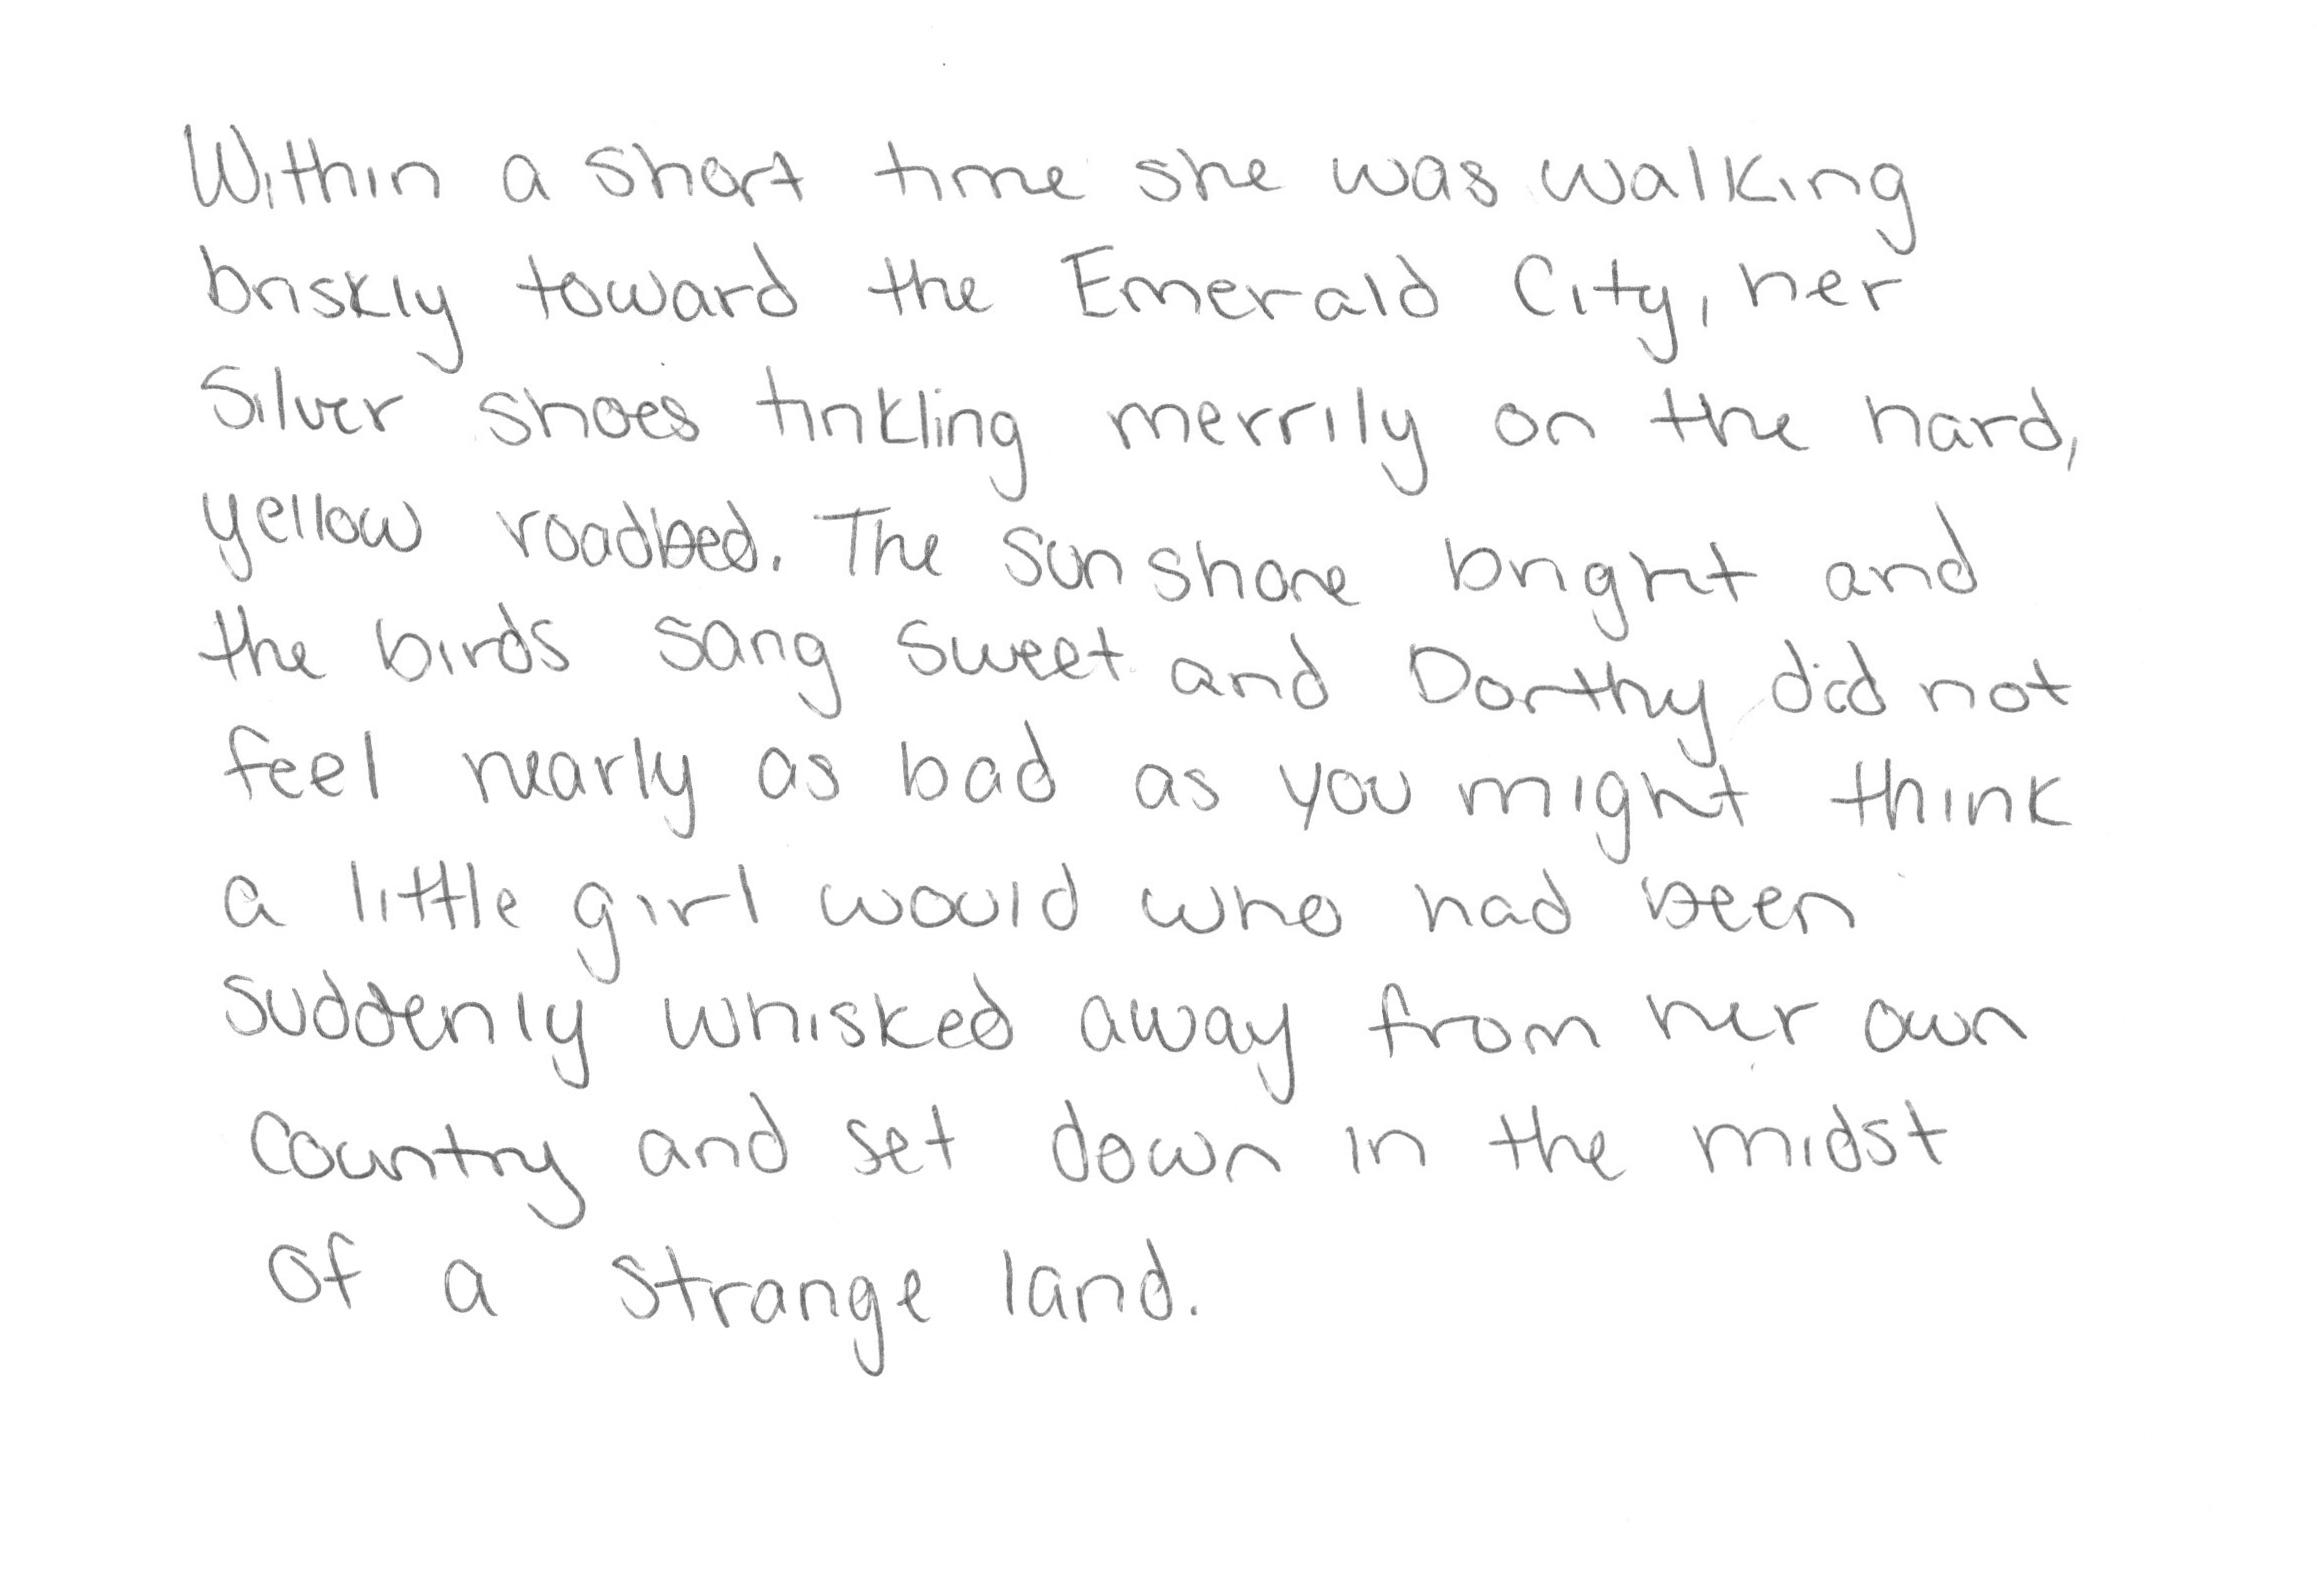 Within a short time she was walking
briskly toward the Emerald City, her
Silver Shoes tinkling merrily on the hard,
yellow roadbed. The sun shone bright and
the birds sang sweet and Dorthy did not
feel nearly as bad as you might think
a little girl would who had been
suddenly whisked away from her own
country and set down in the midst
of a strange land.